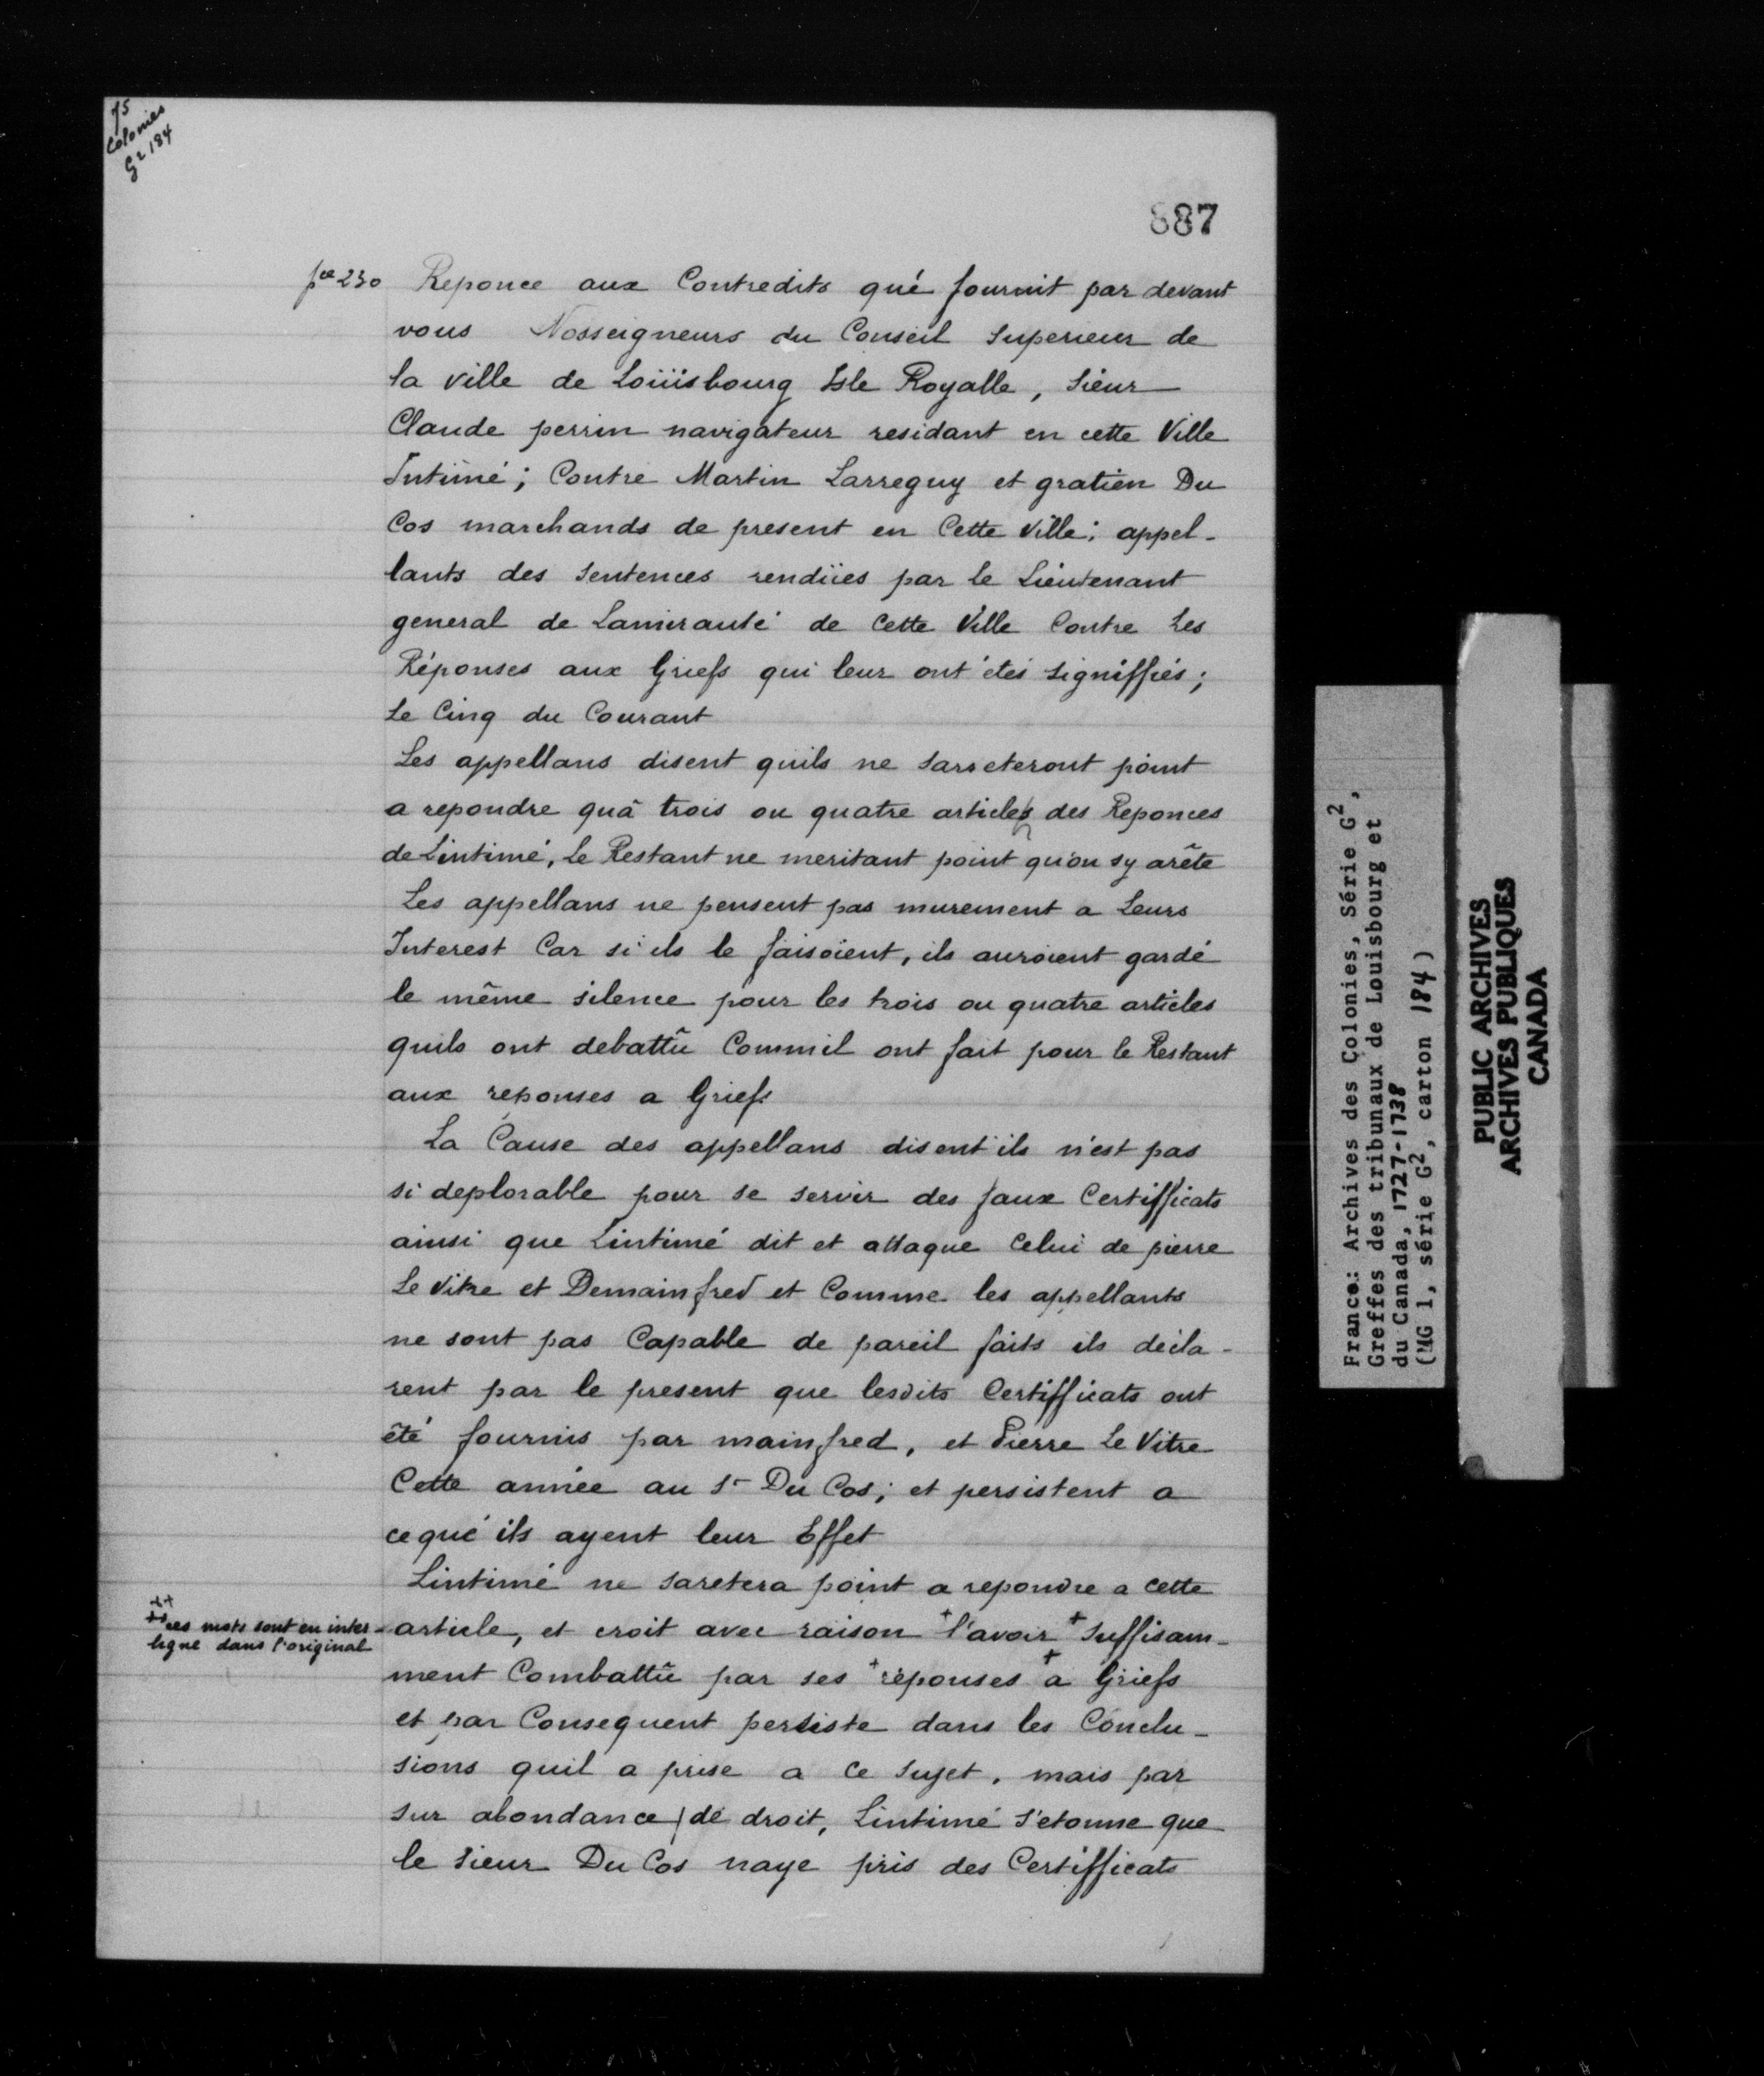 75
Colonies
G2 184
887
pce 230 Reponce aux Contredits qué fournit par devant
vous Nosseigneurs du Conseil Superieur de
la ville de Loüisbourg Isle Royalle, Sieur
Claude perrin navigateur residant en cette Ville
Intimé; Contre Martin Larreguy et gratien Du
Cos marchands de present en Cette Ville; appel-
lants des Sentences rendües par le Lieutenant
general de Lamirauté de Cette Ville Contre Les
Réponses aux Griefs qui leur ont étés Signiffiés;
Le Cinq du Courant
Les appellans disent quils ne Sarreteront point
a repondre quâ trois ou quatre articles des Reponces
de Lintimé, Le Restant ne meritant point qu'on sy arête
Les appellans ne pensent pas murement a Leurs
Interest Car si ils le faisoient, ils auroient gardé
le même silence pour les trois ou quatre articles
quils ont debattû Commil ont fait pour le Restant
aux reponses a Griefs
La Cause des appellans disent ils n'est pas
si deplorable pour se servir des faux Certifficats
ainsi que Lintimé dit et attaque Celui de pierre
Le Vitre et Demainfred et Comme les appellants
ne sont pas Capable de pareil faits ils décla-
rent par le present que lesdits Certifficats ont
été fournis par mainfred, et Pierre Le Vitre
Cette année au Sr Du Cos; et persistent a
ce qué ils ayent leur Effet
Lintimé ne Saretera point a repondre a Cette
++
++ ces mots sont en inter-
ligne dans l'original
article, et croit avec raison + l'avoir + Suffisam-
ment Combattû par ses + réponses + a Griefs
et par Consequent persiste dans les Conclu-
sions quil a prise a Ce Sujet, mais par
Sur abondance de droit, Lintimé S'etonne que
le Sieur Du Cos naye pris des Certifficats
France: Archives des Colonies, Série G2,
Greffes des tribunaux de Louisbourg et
du Canada, 1727-1738
(MG 1, série G2, carton 184)
PUBLIC ARCHIVES
ARCHIVES PUBLIQUES
CANADA